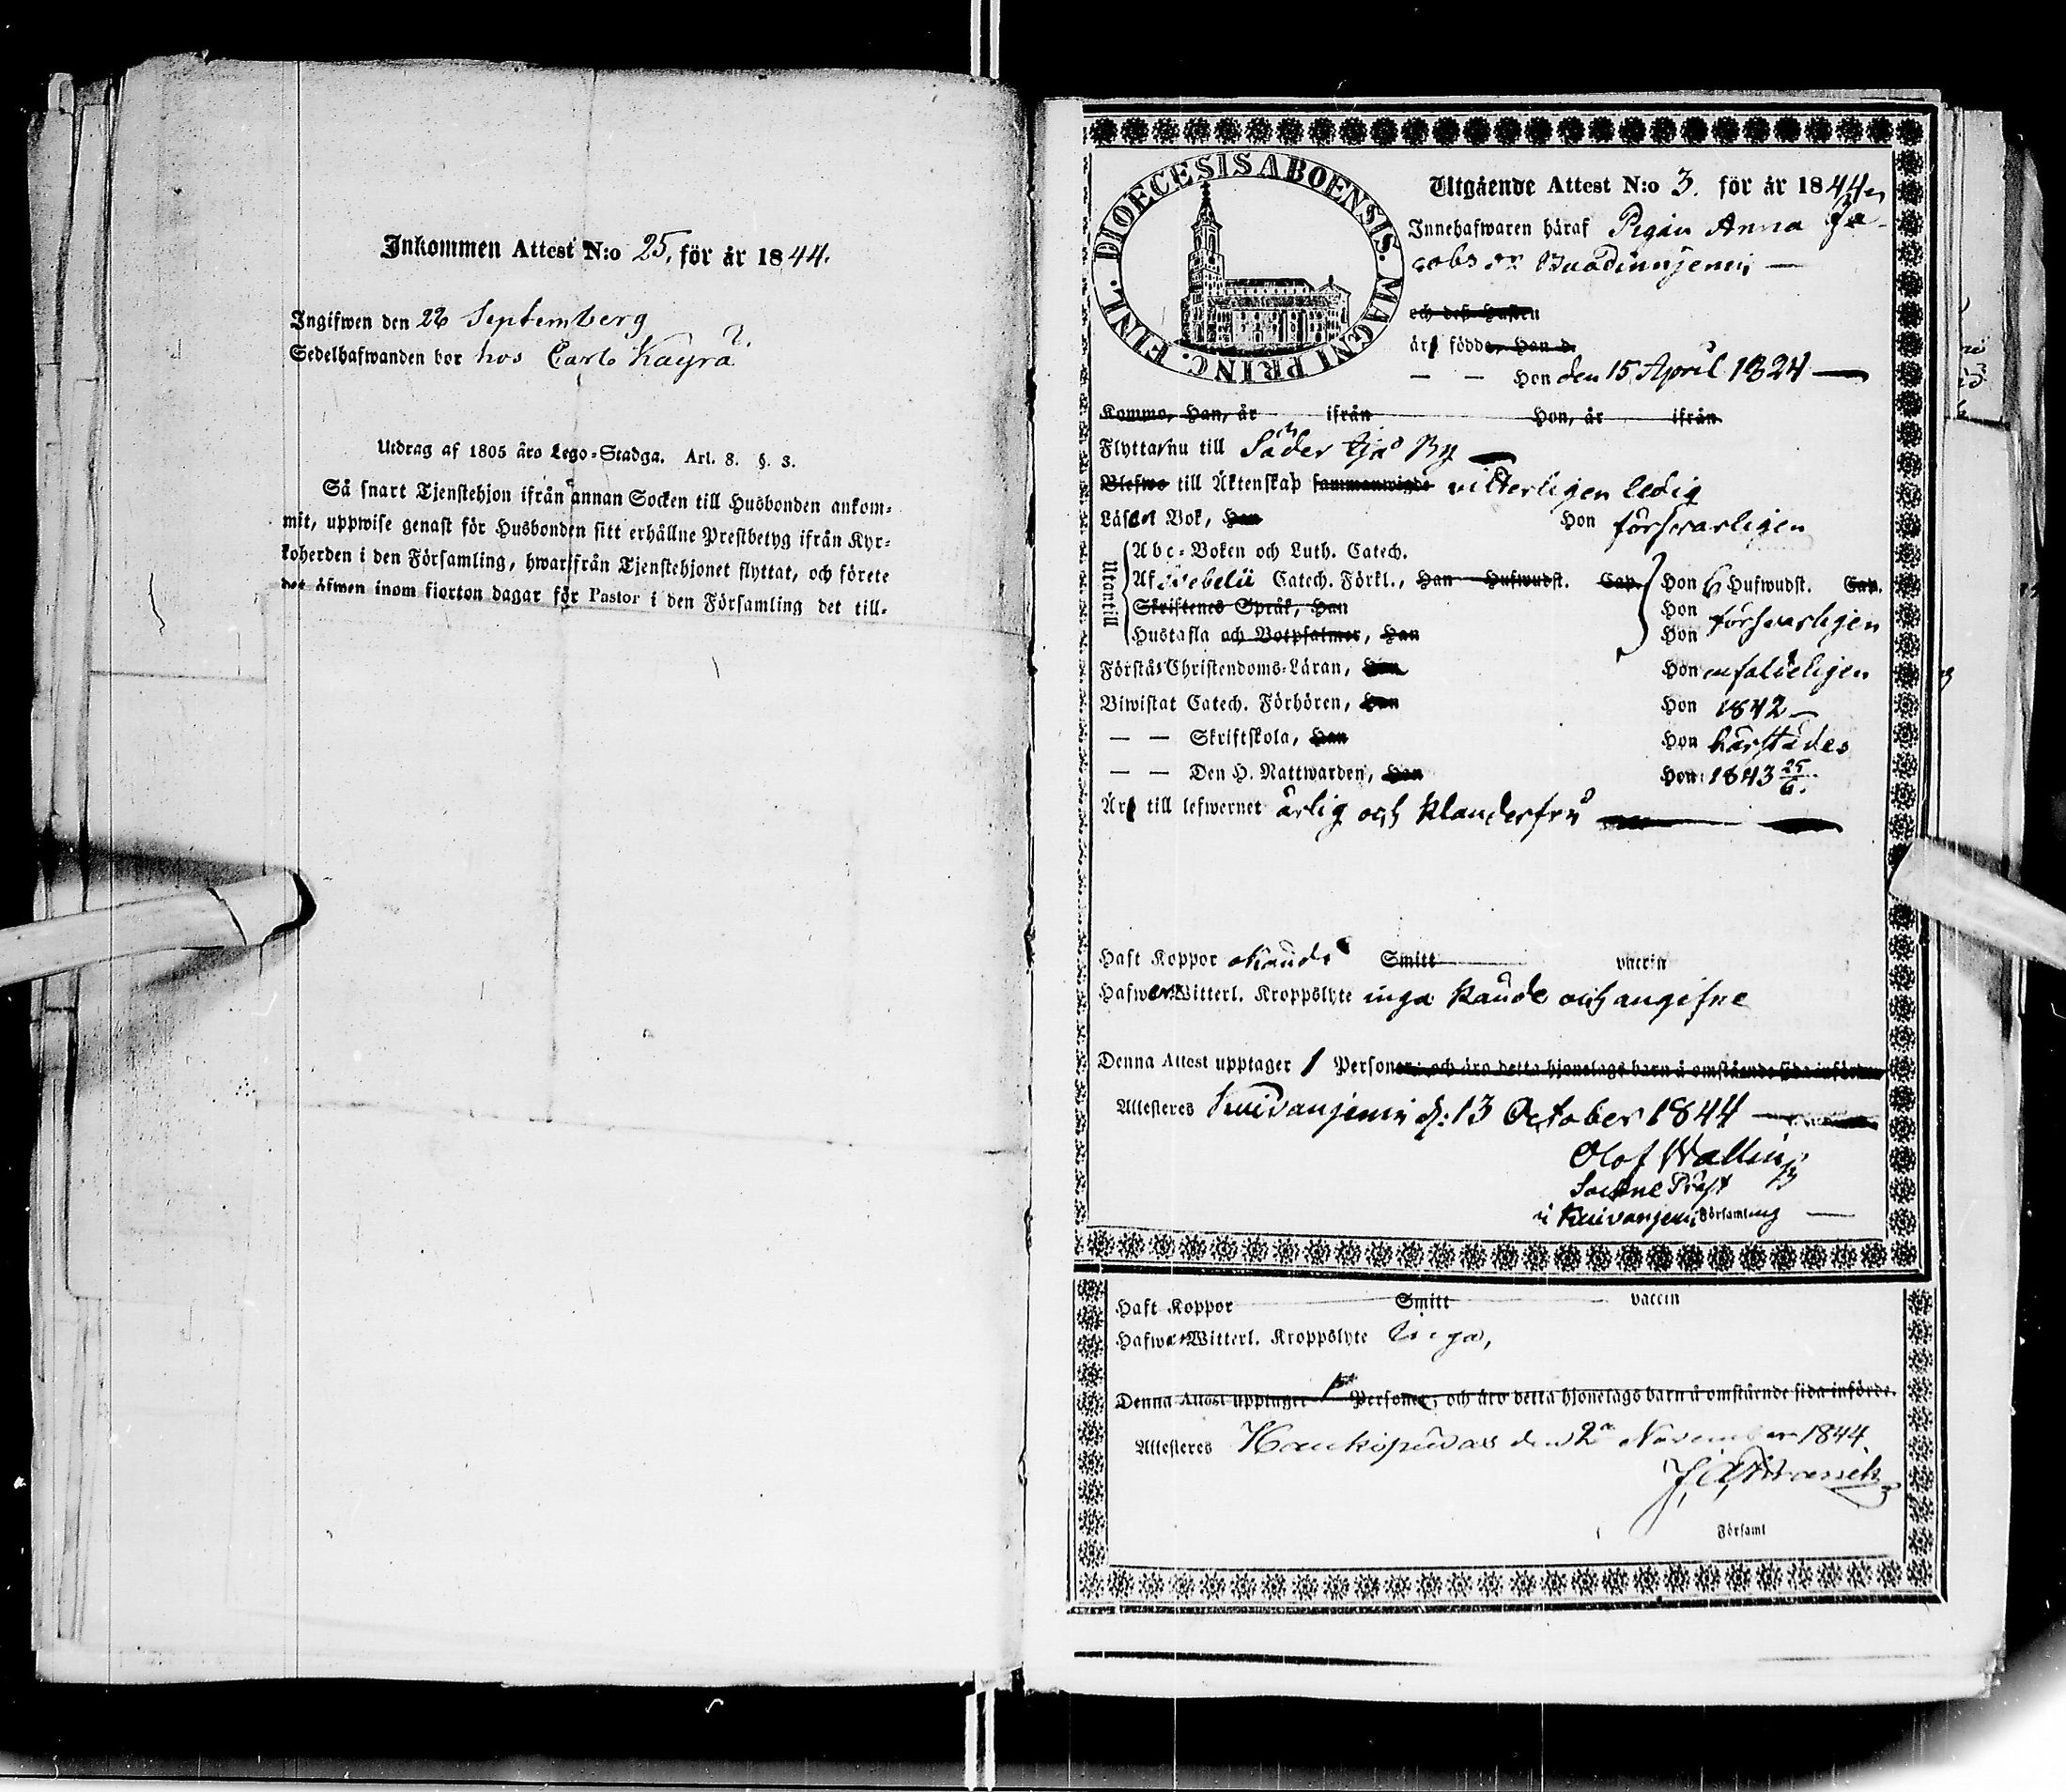 Inkommen Attest N:o 25, för år 1844.
Ingifwen den 22 September
Sedelhafwanden bor hos Carls Kayrä
Utdrag af 1805 års Lego-Stadga. Art. 8. §. 3.
Så snart Tjenstehjon ifrån annan Socken till Husbonden ankom-
mit, uppwise genast för Husbonden sitt erhållne Prestbetyg ifrån Kyr-
koherden i den Församling, hwarifrån Tjenstehjonet flyttat, och förete
det äfwen inom fjorton dagar för Pastor i den Församling det till-
DIOECESIS ABOENSIS. MAGNI PRINC. FINL.
Utgående Attest N:o 3. för år 1844
Innehafwaren häraf Pigan Anna Ja-
cobs dr
och dess Hustru
är födde, Han d.
— — Hon den 15 April 1824 —
Kommo, Han, år ifrån Hon, år ifrån
Flyttar nu till By
Blefwo till Äktenskap sammanwigde vitterligen ledig
Läser i Bok, Han Hon försvarligen
Utantill
Abc-Boken och Luth. Catech.
Af Svebelii Catech. Förkl., Han Hufwudst. Cap. Hon 6 Hufwudst. Cap.
Skriftenes Språk, Han Hon försvarligen
Hustafla och Botpsalmer, Han Hon
Förstår Christendoms-Läran, Han Hon enfaldeligen
Biwistat Catech. Förhören, Han Hon 1842
— — Skriftskola, Han Hon härstädes
— — Den H. Nattwarden, Han Hon 1843 25/6.
Är till lefwernet ärlig och klanderfri
Haft Koppor okändt Smitt vaccin
Hafwer Witterl. Kroppslyte inga kände och angifne
Denna Attest upptager 1 Personer, och äro detta hjonelags barn å omstående sida införde.
Attesteres d: 13 October 1844
Olof Wallin
Sockne Präst
i Församling
Haft Koppor Smitt vaccin
Hafwer Witterl. Kroppslyte inga,
Denna Attest upptager 1 Personer, och äro detta hjonelags barn å omstående sida införde.
Attesteres Haukipudas den 2 November 1844
Församl